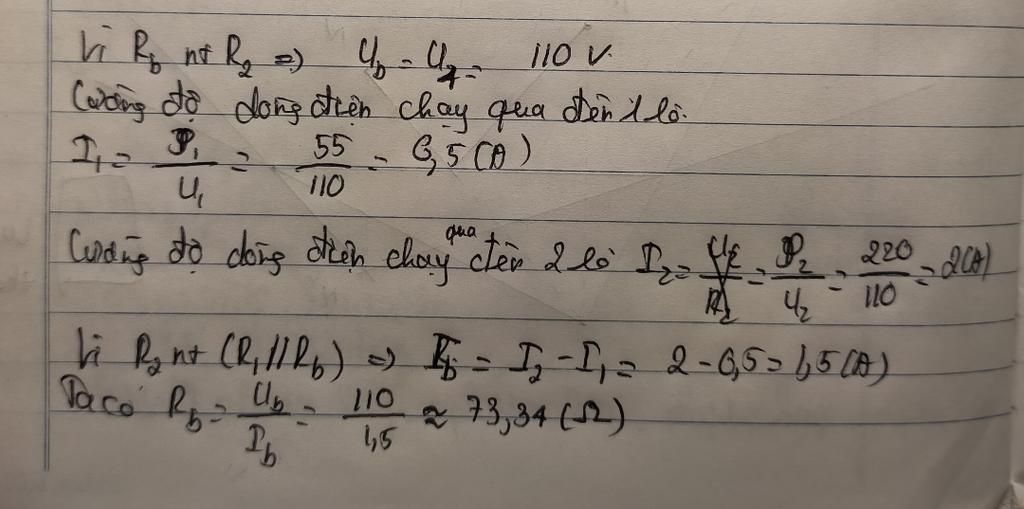 Vì R_b nt R_2 => U_b = U_1 = 110 V.
Cường độ dòng điện chạy qua đèn 1 là:
I_1 = P_1/U_1 = 55/110 = 0,5 (A)
Cường độ dòng điện chạy qua đèn 2 là I_2 = P_2/U_2 = 220/110 = 2(A)
Vì R_2 nt (R_1//R_b) => I_b = I_2 - I_1 = 2 - 0,5 = 1,5 (A)
Ta có R_b = U_b/I_b = 110/1,5 ≈ 73,34 (Ω)